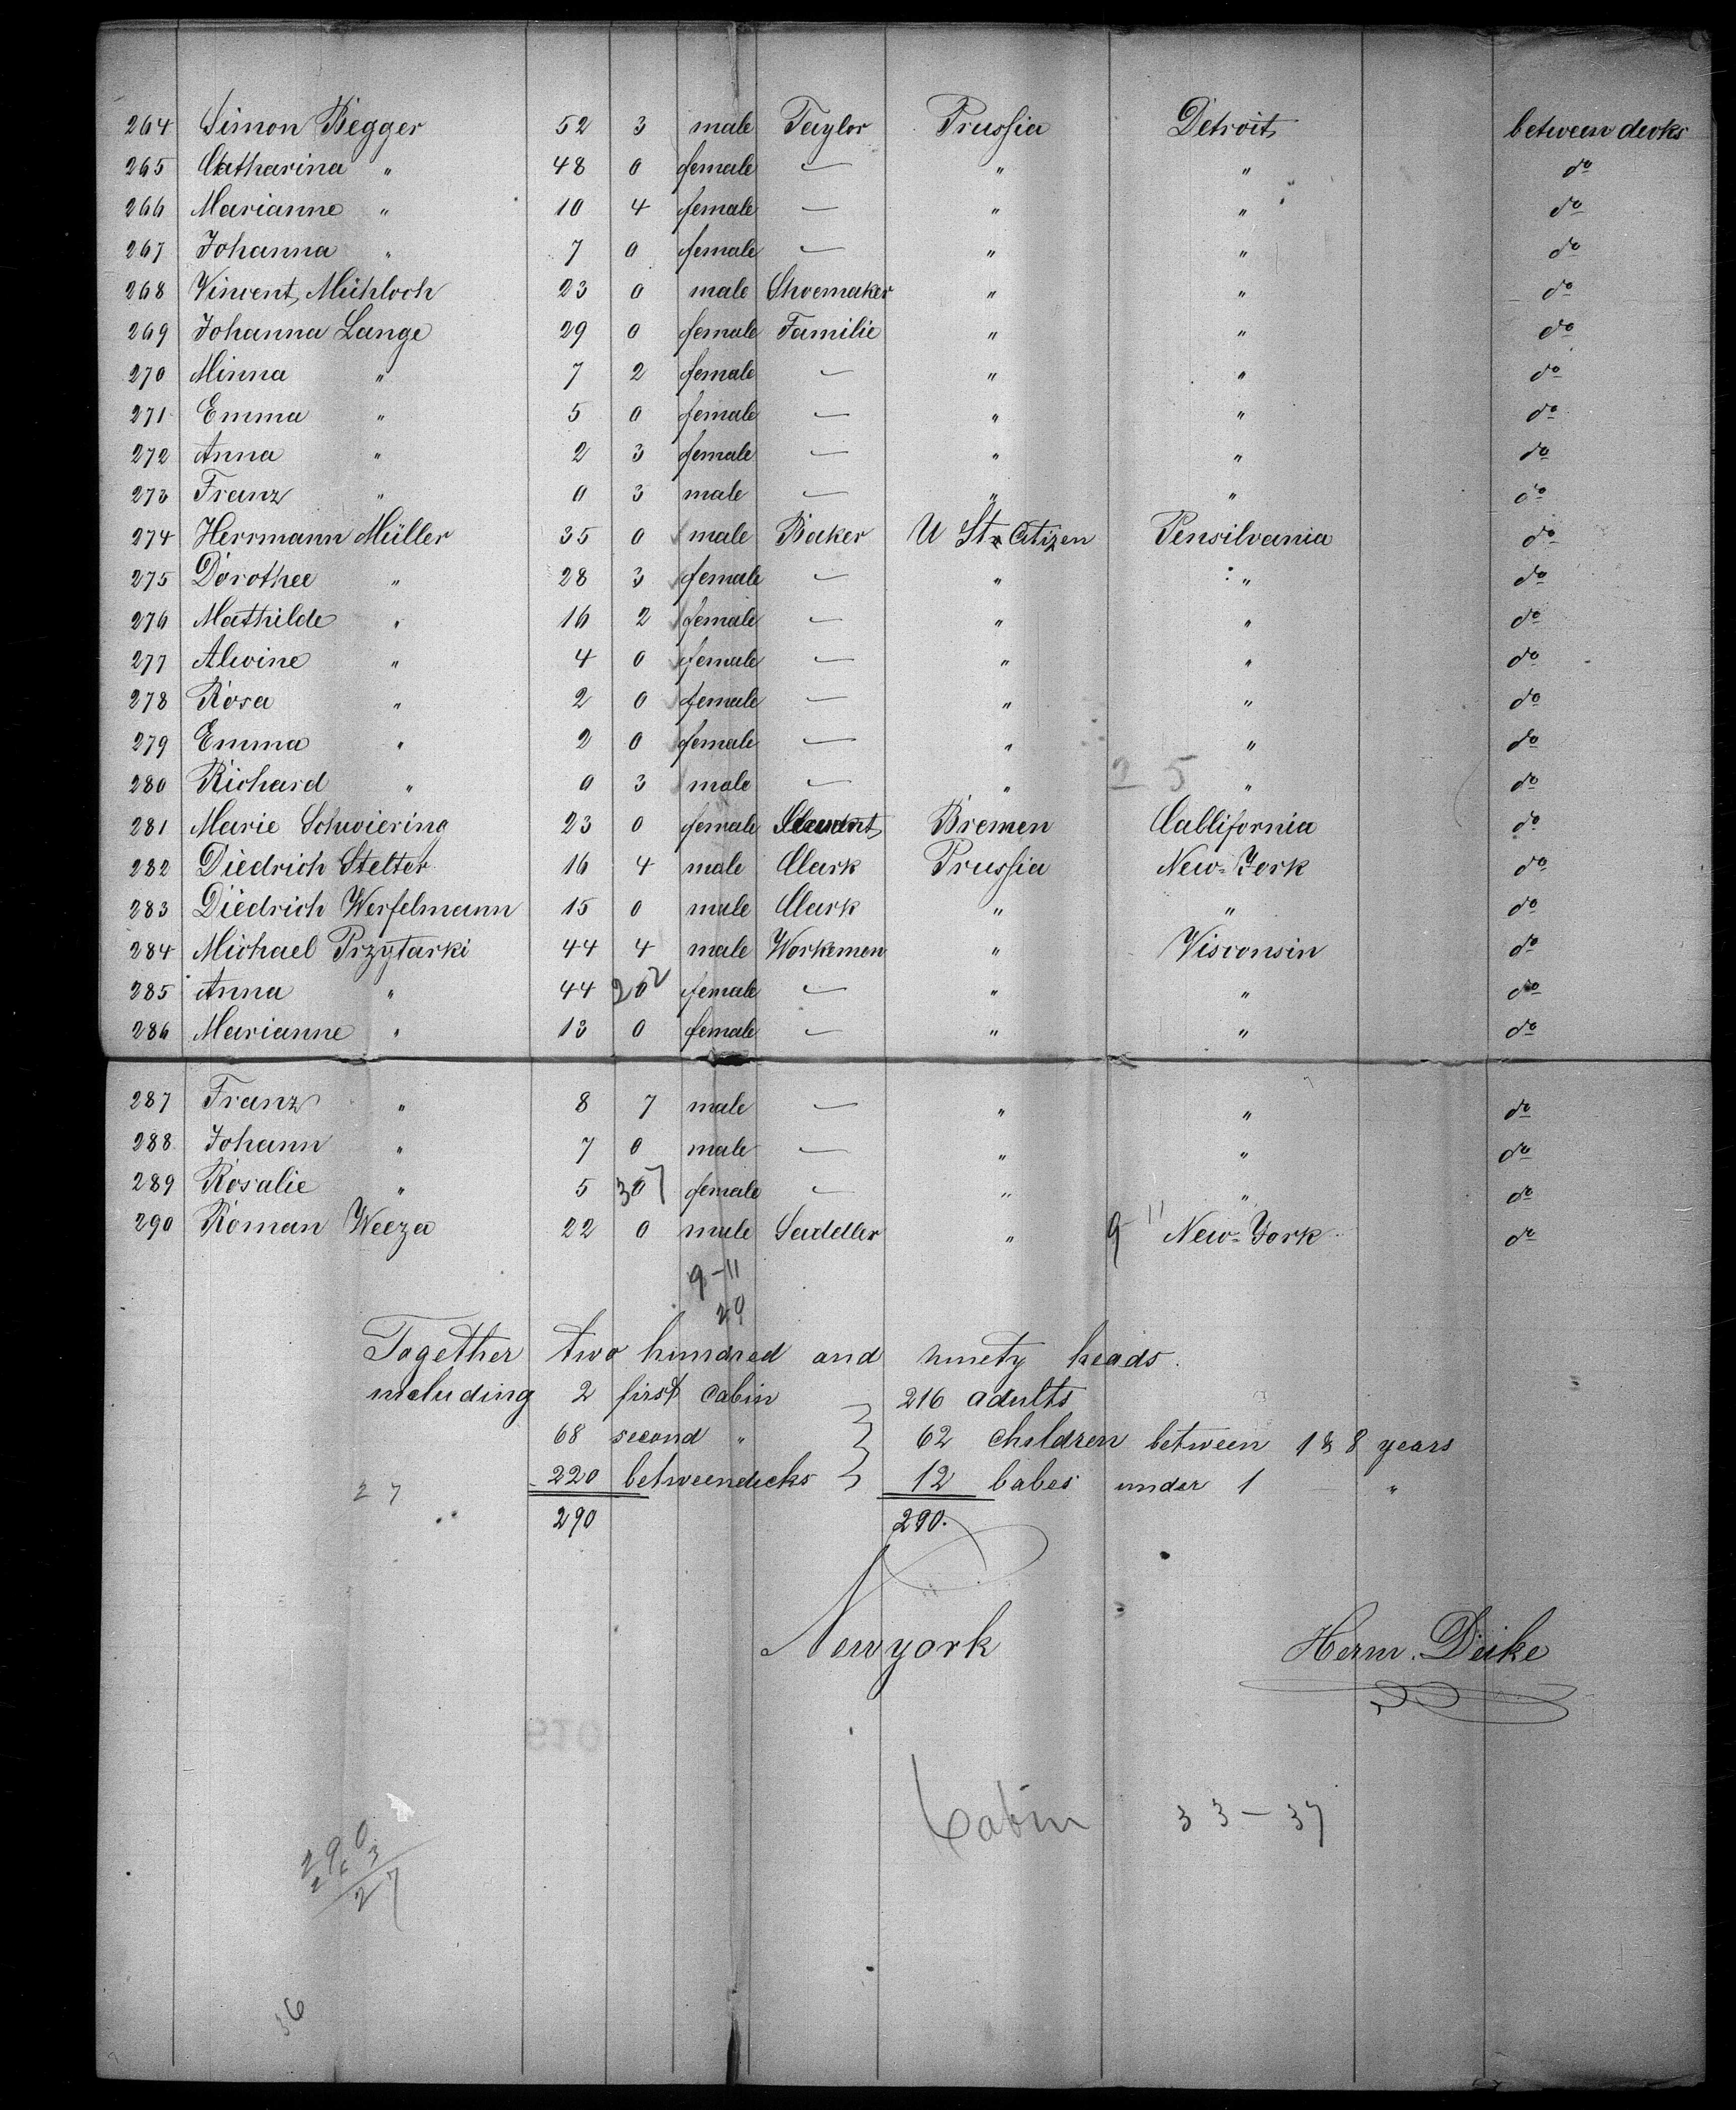 264 Simon Begger 52 3 male Taylor Prussia Detroit between decks
265 Catharina " 48 0 female — " " do
266 Marianne " 10 4 female — " " do
267 Johanna " 7 0 female — " " do
268 Vincent Mühloch 23 0 male Shoemaker " " do
269 Johanna Lange 29 0 female Familie " " do
270 Minna " 7 2 female — " " do
271 Emma " 5 0 female — " " do
272 Anna " 2 3 female — " " do
273 Franz " 0 3 male — " " do
274 Herrmann Müller 35 0 male Baker U St Citizen Pensilvania do
275 Dorothee " 28 3 female — " " do
276 Mathilde " 16 2 female — " " do
277 Alwine " 4 0 female — " " do
278 Rosa " 2 0 female — " " do
279 Emma " 2 0 female — " " do
280 Richard " 0 3 male — " " do
2 5
281 Marie Schwiering 23 0 female Bremen Callifornia do
282 Diedrich Stelter 16 4 male Clark Prussia New-York do
283 Diedrich Werfelmann 15 0 male Clark " " do
284 Michael Przytarki 44 4 male Workemen " Visconsin do
285 Anna " 44 202 female — " " do
286 Marianne " 13 0 female — " " do
287 Franz " 8 7 male — " " do
288 Johann " 7 0 male — " " do
289 Rosalie " 5 307 female — " " do
290 Roman Weeza 22 0 male Sadeller " 9 11 New-York do
9-11
29
Together two hundred and ninety heads.
including 2 first Cabin 216 adults
68 second " 62 Children between 1 & 8 years
220 betweendecks 12 babes under 1 "
27
290 290.
Newyork
Herm. Deike
Cabin 33-37
27
36